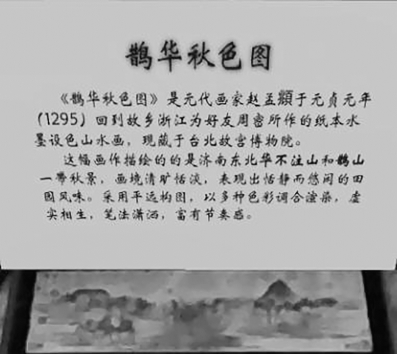 鹊华秋色图
《鹊华秋色图》是元代画家赵孟頫于元贞元年
(1295)回到故乡浙江为好友周密所作的纸本水
墨设色山水画,现藏于台北故宫博物院。
这幅画作描绘的的是济南东北华不注山和鹊山
一带秋景,画境清旷恬淡,表现出恬静而悠闲的田
园风味。采用平远构图,以多种色彩调合渲染,虚
实相生,笔法潇洒,富有节奏感。